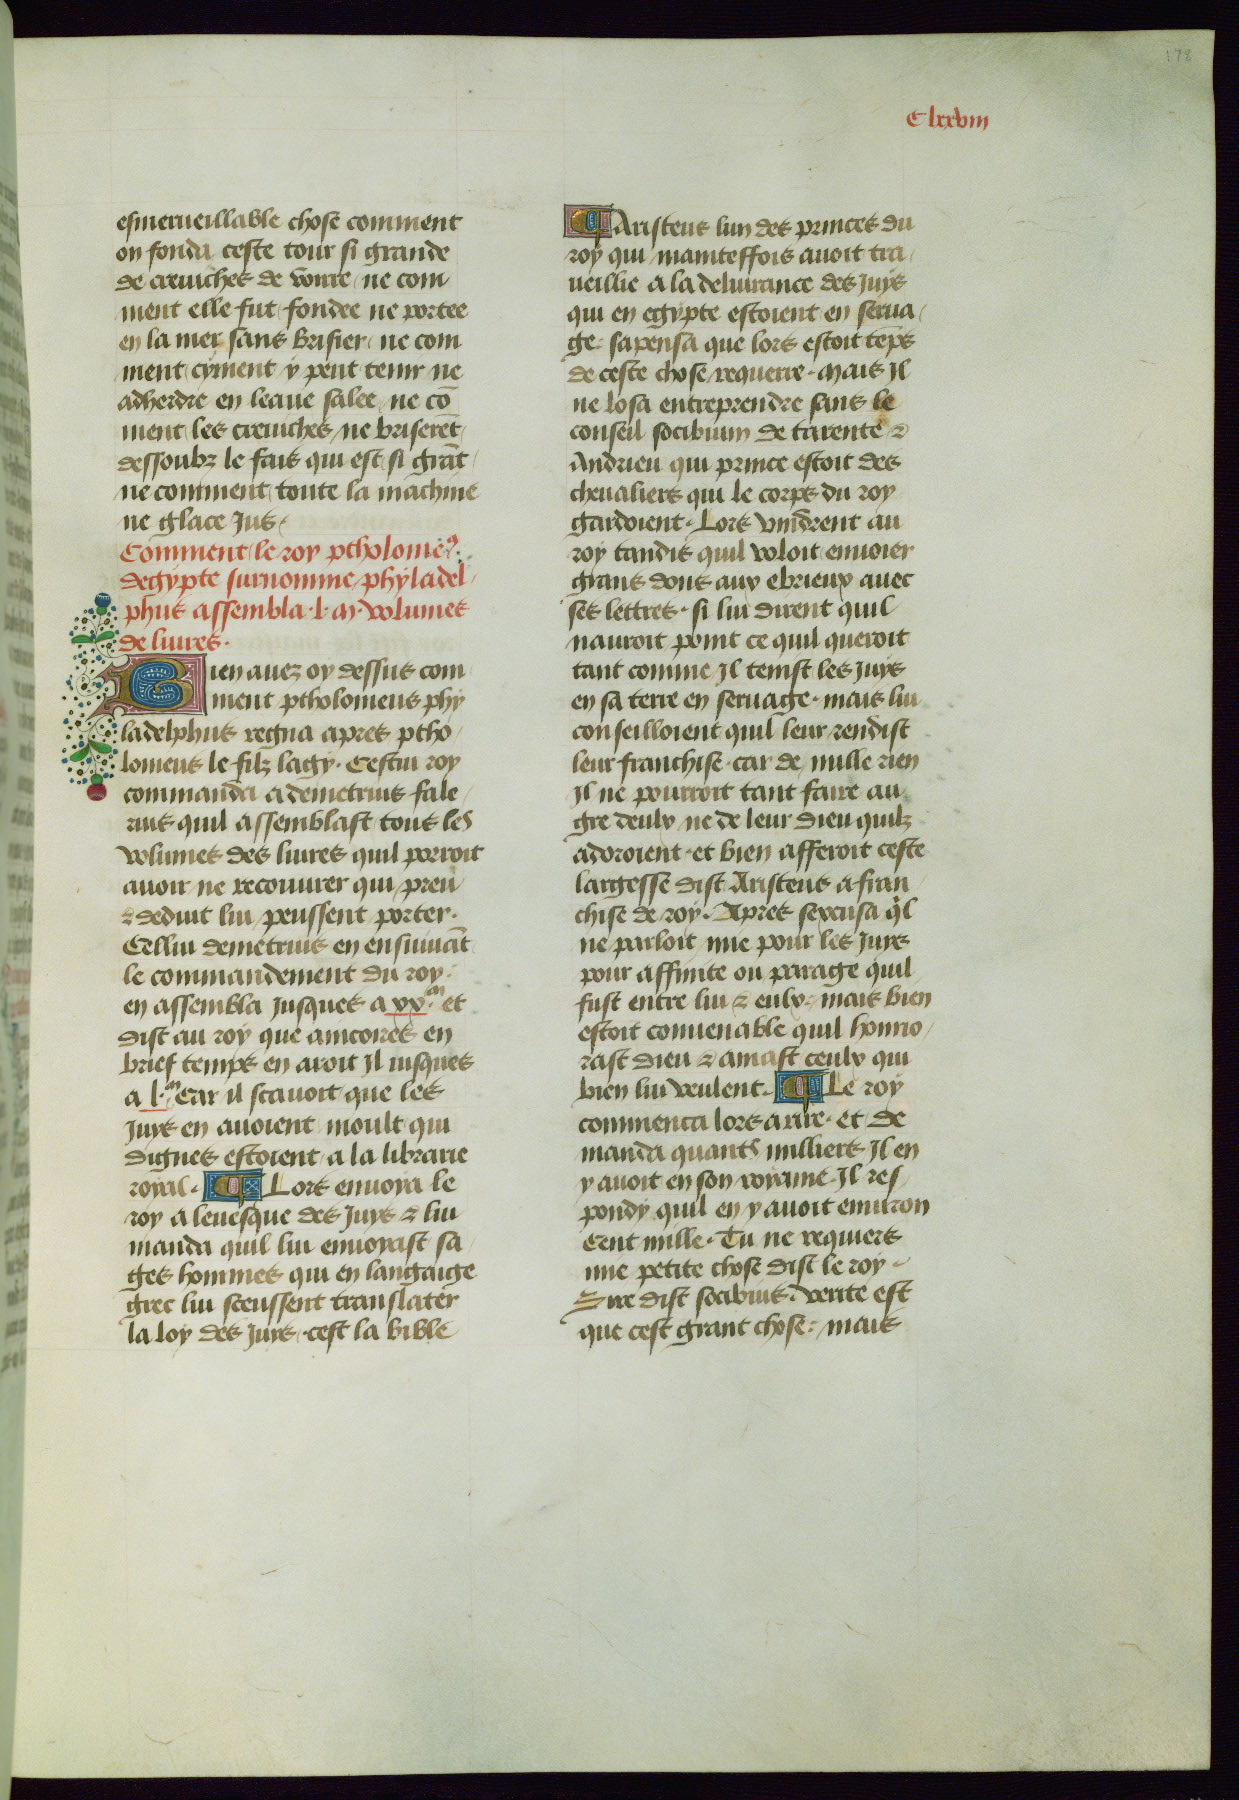 178
Clxxviii
esmerueillable chose comment
on fonda ceste tour si grande
de creuiches de voirre, ne com
ment elle fut fondee ne portee
en la mer sans brisier, ne com
ment cyment y peut tenir ne
adherdre en leaue salee, ne cō
ment les creuiches ne briserēt
dessoubz le fais qui est si grāt
ne comment toute la machine
ne glace jus.
Comment le roy ptholomeꝰ
degypte surnomme phyladel
phus assembla .l. m. volumes
de liures.
Bien auez oy dessus com
ment ptholomeus phy
ladelphus regna apres ptho
lomeus le filz lagy. Cestui roy
commanda a demetrius fale
rius quil assemblast tous les
volumes des liures quil porroit
auoir ne recouurer qui preu
⁊ deduit lui peussent porter.
Cellui demetrius en ensuiuāt
le commandement du roy.
en assembla jusques a xx.m et
dist au roy que aincores en
brief temps en aroit il iusques
a l.m Car il scauoit que les
juys en auoient moult qui
dignes estoient a la librarie
royal. ¶ Lors enuoya le
roy a leuesque des juys ⁊ lui
manda quil lui enuoyast sa
ges hommes qui en langaige
grec lui sceussent translater
la loy des juys, cest la bible
¶ Aristeus lun des princes du
roy qui mainteffois auoit tra
ueillie a la deliurance des juys
qui en egypte estoient en serua
ge, sapensa que lors estoit tēps
de ceste chose requerre. mais Il
ne losa entreprendre sans le
conseil socibium de tarente ⁊
Andrieu qui prince estoit des
cheualiers qui le corps du roy
gardoient. Lors vindrent au
roy tandis quil voloit enuoier
grans dons aux ebrieux auec
ses lettres. si lui dirent quil
nauroit point ce quil queroit
tant comme Il tenist les juys
en sa terre en seruage. mais lui
conseilloient quil leur rendist
leur franchise. car de mille rien
Il ne pourroit tant faire au
gre deulx ne de leur dieu quilz
adoroient. et bien afferoit ceste
largesse dist Aristeus a fran
chise de roy. Apres sexcusa q̄l
ne parloit mie pour les juys
pour affinite ou parage quil
fust entre lui ⁊ eulx. mais bien
estoit conuenable quil honno
rast dieu ⁊ amast ceulx qui
bien lui veulent. ¶ Le roy
commenca lors a rire. et de
manda quants milliers Il en
y auoit en son royame. Il res
pondy quil en y auoit enuiron
Cent mille. Tu ne requiers
mie petite chose dist le roy.
Sire dist socibius. verite est
que cest grant chose: mais